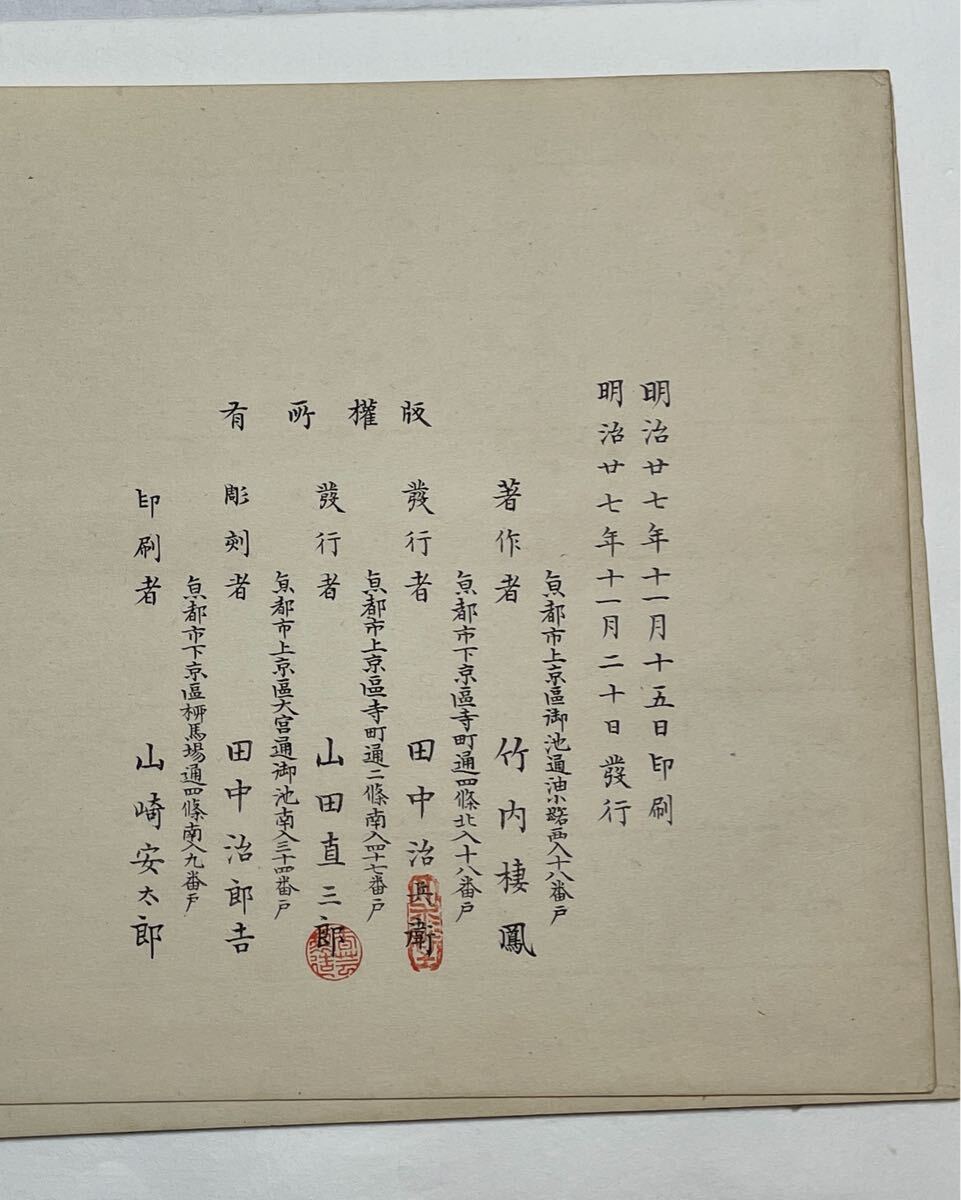 明治廿七年十一月十五日印刷
明治廿七年十一月二十日發行
京都市上京區御池通油小路西入十八番戸
著作者 竹内棲鳳
版權所有
京都市下京區寺町通四條北入十八番戸
發行者 田中治兵衛
京都市上京區寺町通二條南入四十七番戸
發行者 山田直三郎
京都市上京區大宮通御池南入三十四番戸
彫刻者 田中治郎吉
京都市下京區柳馬場通四條南入九番戸
印刷者 山崎安太郎